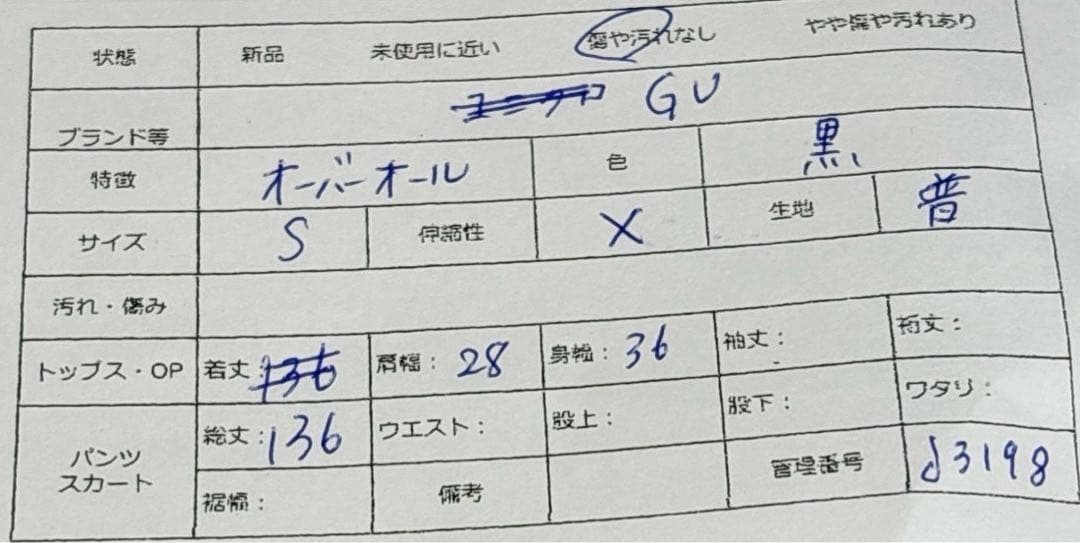 状態 新品 未使用に近い 傷や汚れなし やや傷や汚れあり
ブランド等 ユニクロ GU
特徴 オーバーオール 色 黒
サイズ S 伸縮性 X 生地 普
汚れ・傷み
トップス・OP 着丈:136 肩幅:28 身幅:36 袖丈: 裄丈:
パンツ スカート 総丈:136 ウエスト: 股上: 股下: ワタリ:
裾幅: 備考 管理番号 d3198